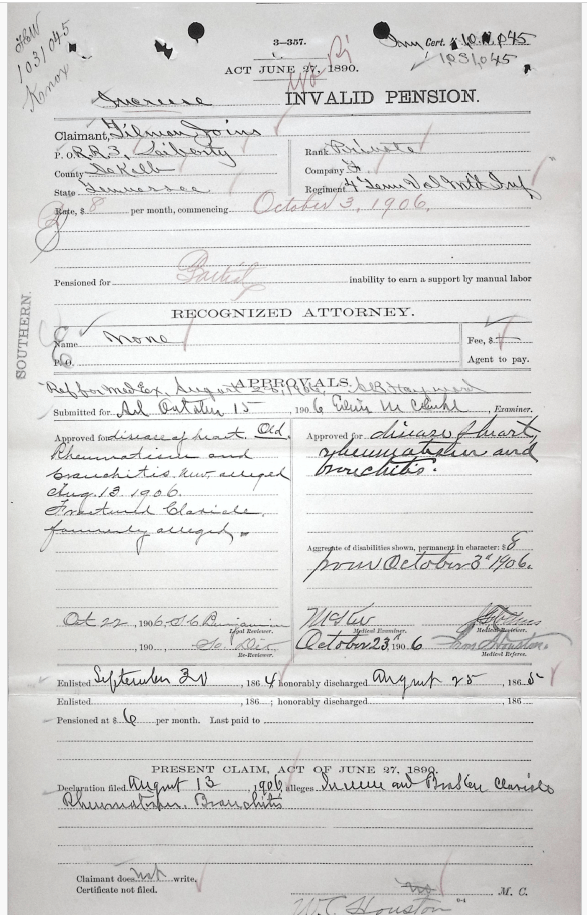 1031045
Knox
3—357.
Inv Cert.
1031045
ACT JUNE 27, 1890.
Increase INVALID PENSION.
Claimant, Tilmon Joins
P. O. R.R.3, Liberty
County DeKalb
State Tennessee
Rank Private
Company F.
Regiment 4" Tenn Vol Mt'd Inf
Rate, $ 8 per month, commencing October 3, 1906.
Pensioned for Partial inability to earn a support by manual labor
SOUTHERN.
RECOGNIZED ATTORNEY.
Name None
P. O.
Fee, $
Agent to pay.
APPROVALS.
Ref for Med Ex, August
Submitted for Ad October 15, 1906 M , Examiner.
Approved for disease of heart. Old.
Rheumatism and
bronchitis. New. alleged
Aug. 13. 1906.
Fractured Clavicle,
formerly alleged
Approved for disease of heart,
rheumatism and
bronchitis.
Aggregate of disabilities shown, permanent in character: $ 8
from October 3d 1906.
Oct 22, 1906, S. C. Benjamin
Legal Reviewer.
, 190 ,
Re-Reviewer.
Medical Examiner.
Medical Reviewer.
October 23, 1906 Houston.
Medical Referee.
Enlisted September 30, 1864; honorably discharged August 25, 1865
Enlisted , 186 ; honorably discharged , 186
Pensioned at $ 6 per month. Last paid to
PRESENT CLAIM, ACT OF JUNE 27, 1890.
Declaration filed August 13, 1906, alleges Increase and Broken Clavicle
Rheumatism, Bronchitis
Claimant does not write.
Certificate not filed.
no M. C.
W. C. Houston